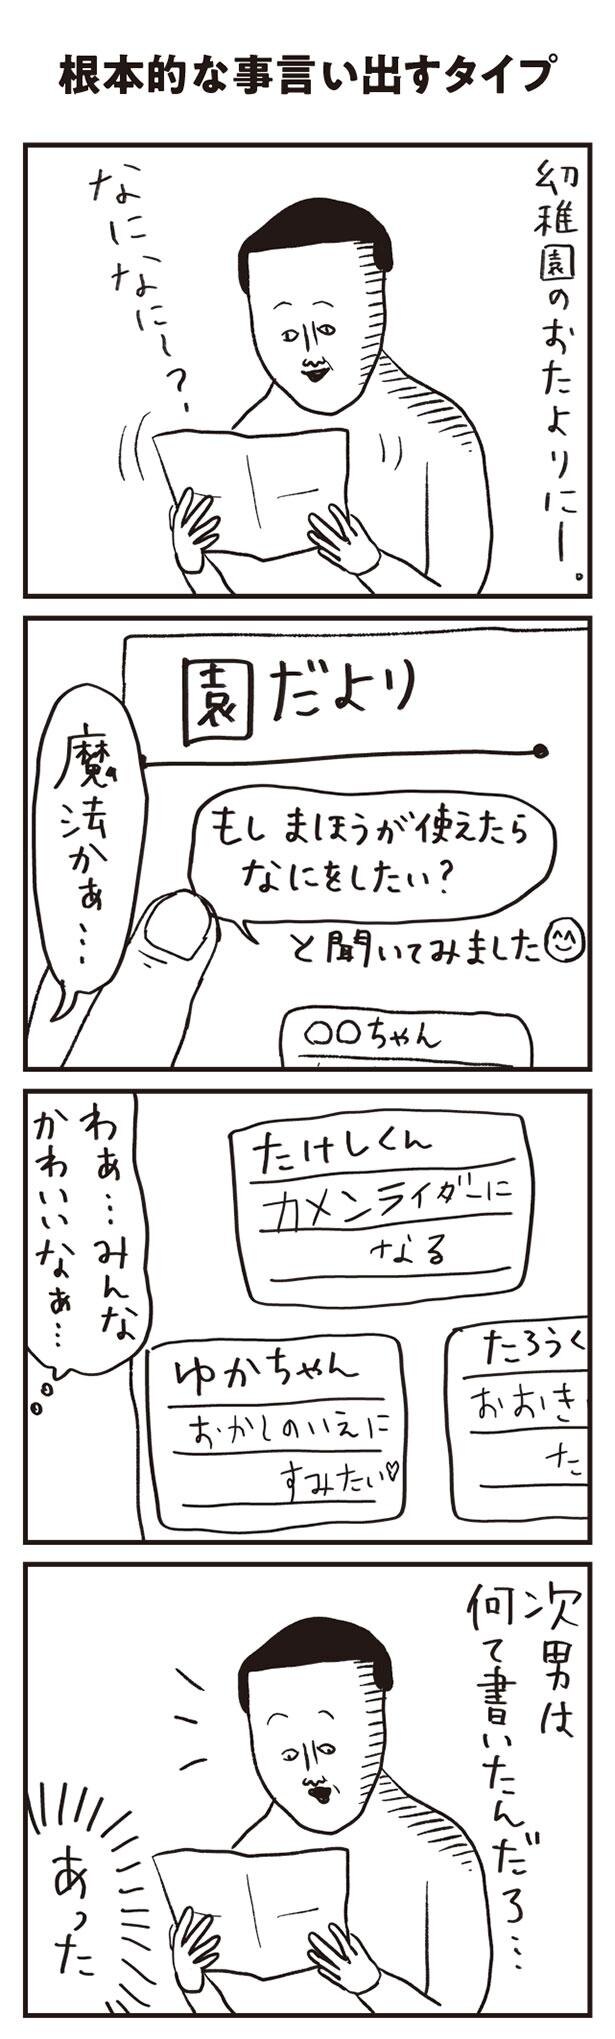 根本的な事言い出すタイプ
幼稚園のおたよりにー。
なになにー？
園だより
もしまほうが使えたら
なにをしたい？
と聞いてみました
魔法かぁ…
〇〇ちゃん
たけしくん
カメンライダーに
なる
わぁ…みんな
かわいいなぁ…
たろうく
おおき
た
ゆかちゃん
おかしのいえに
すみたい♡
次男は
何て書いたんだろ…
あった